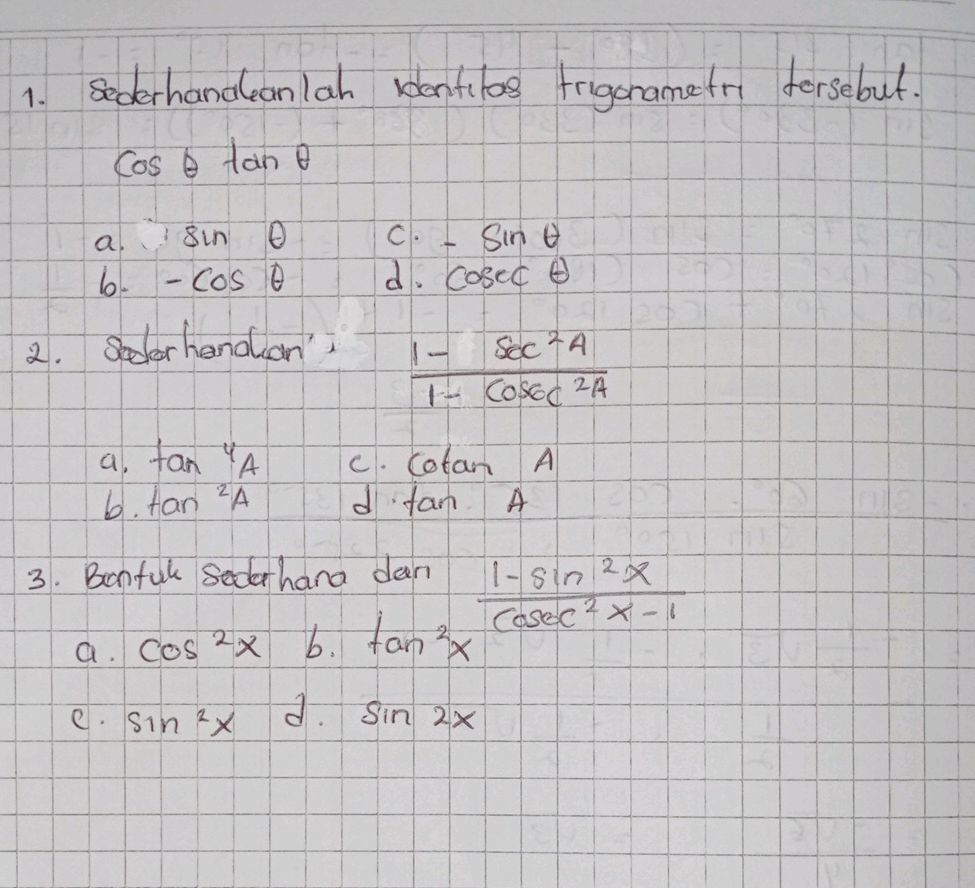 1. Sederhanakanlah identitas trigonametri tersebut.
Cos θ tan θ
a. sin θ c. - Sin θ
b. - cos θ d. cosec θ
2. Sederhanakan : 1 - Sec ²A / 1 - Cosec ²A
a. tan ⁴A c. Cotan A
b. tan ²A d. tan A
3. Bentuk Sederhana dari 1 - sin ²x / Cosec ² x - 1
a. cos ²x b. tan ²x
c. sin ²x d. Sin 2x